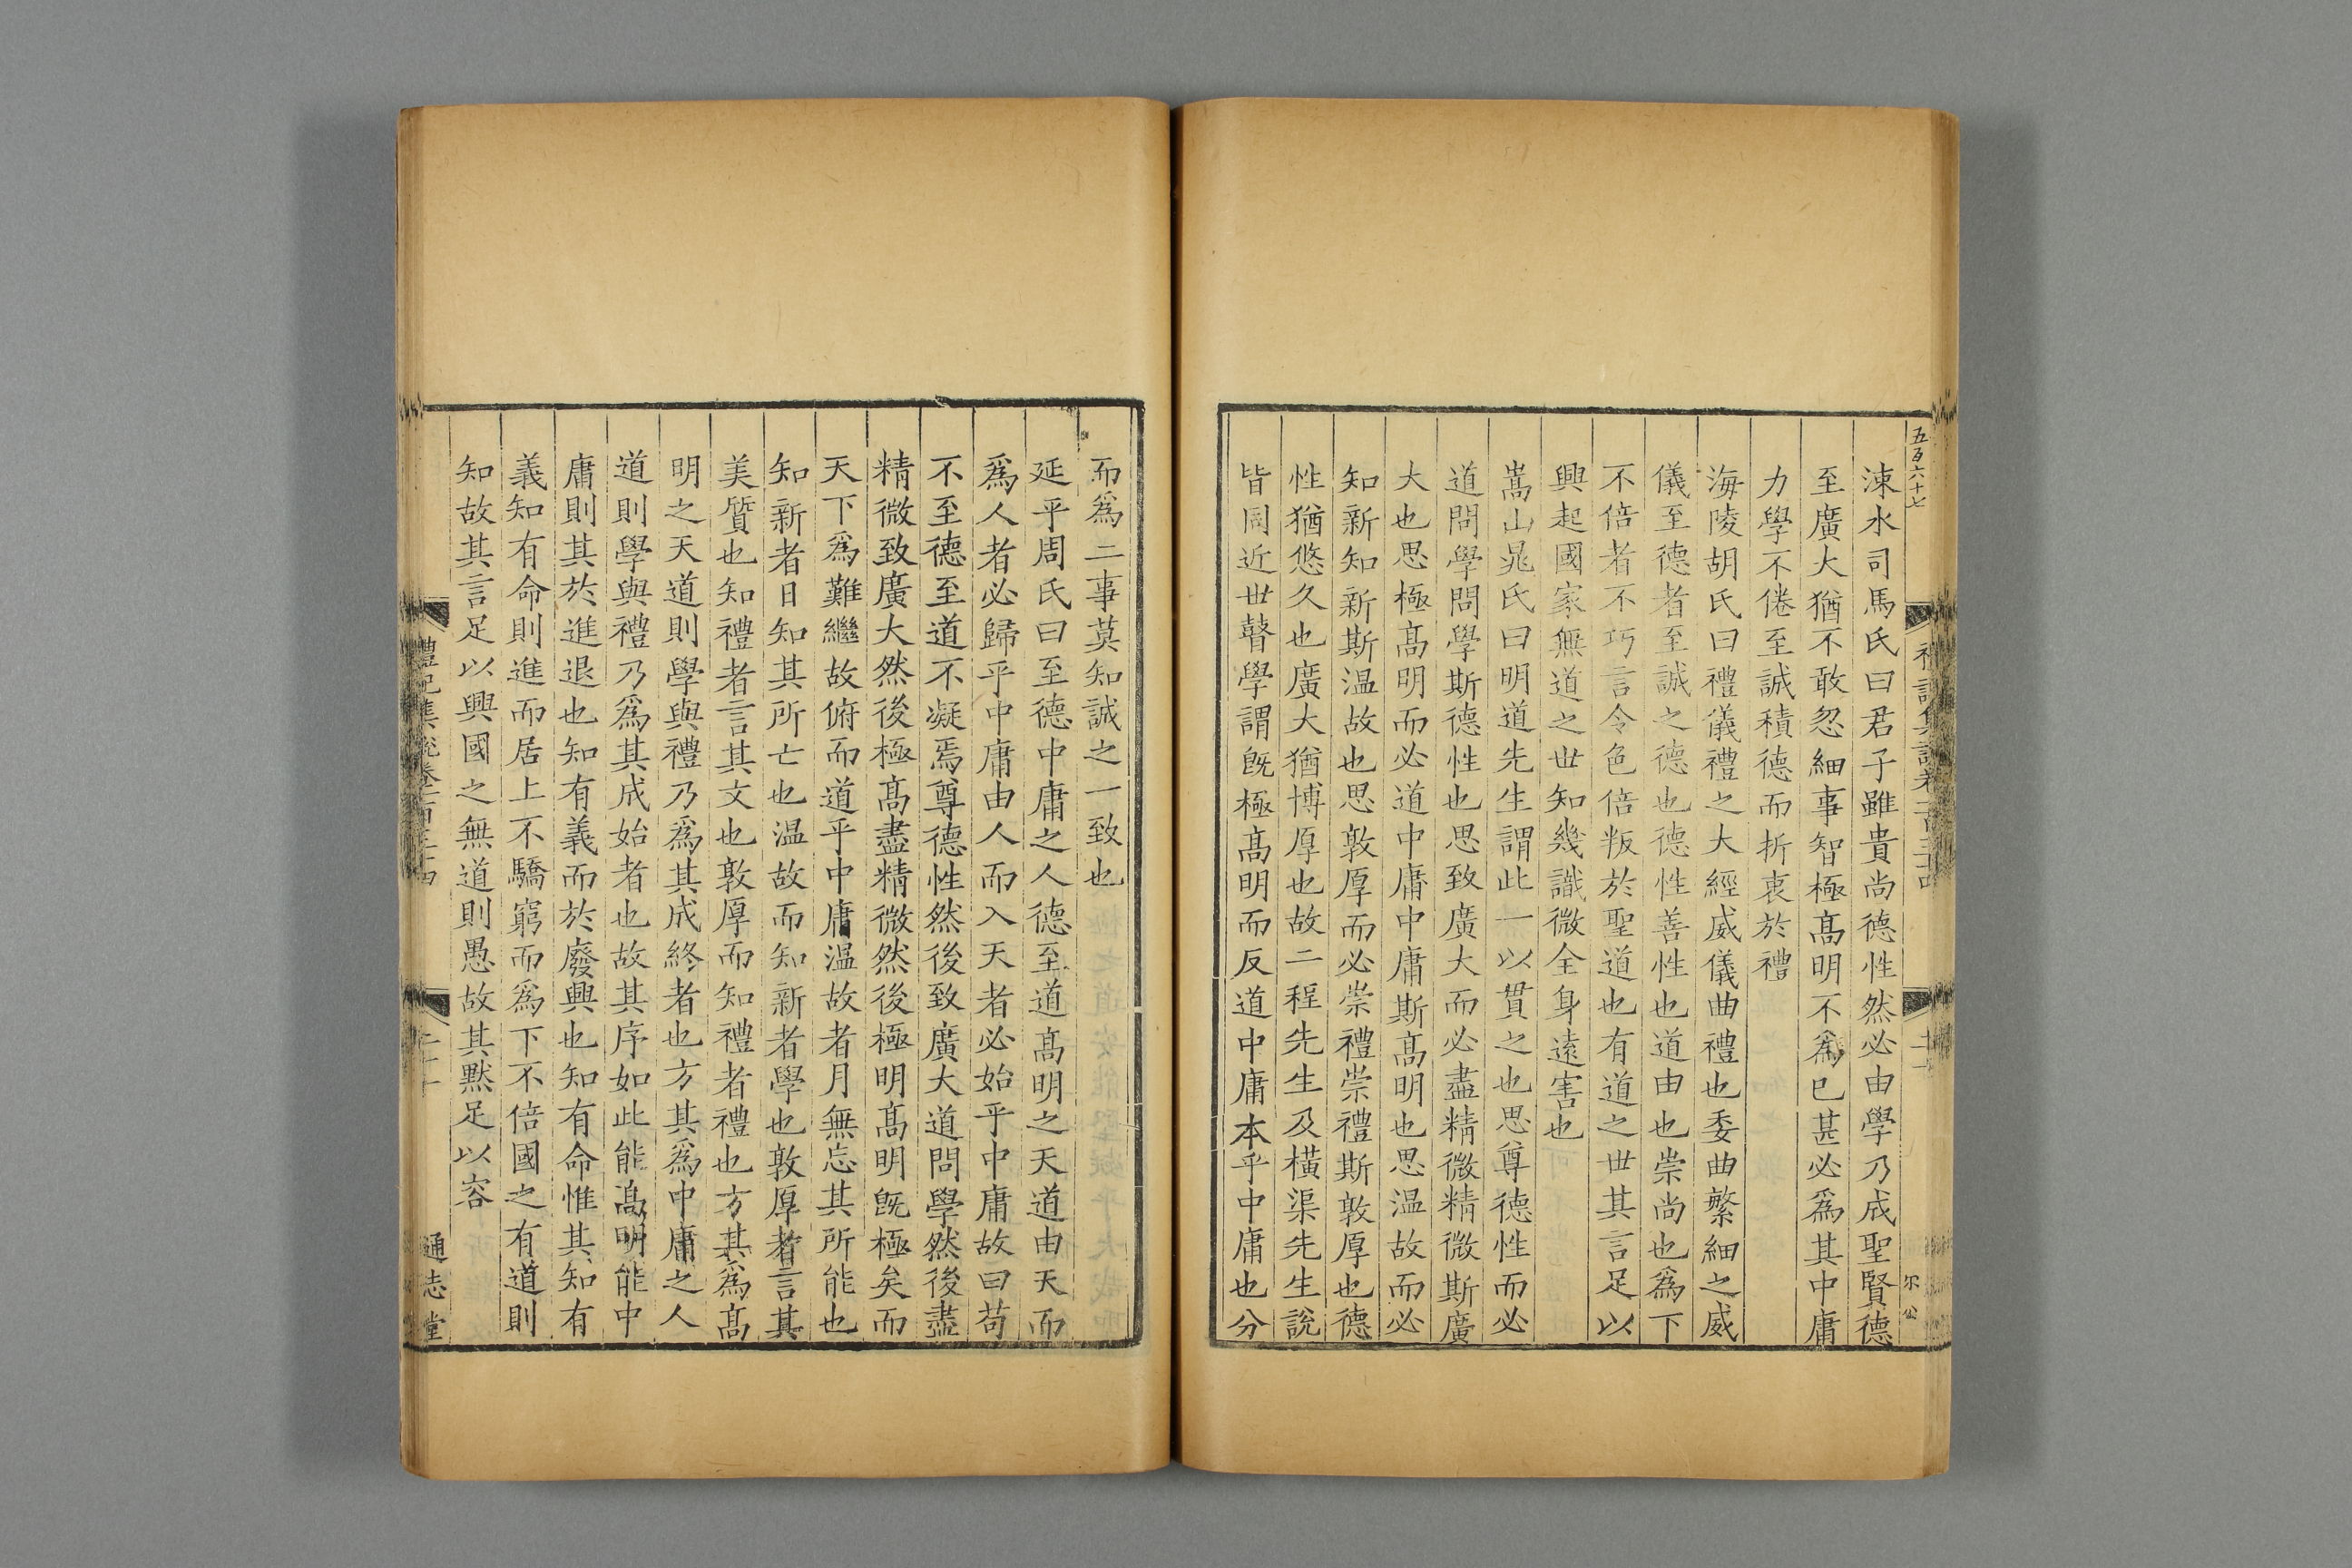 五百六十七
涑水司馬氏曰君子雖貴尚德性然必由學乃成聖賢德
至廣大猶不敢忽細事智極髙明不爲已甚必爲其中庸
力學不倦至誠積德而折衷於禮
海陵胡氏曰禮儀禮之大經威儀曲禮也委曲繁細之威
儀至德者至誠之德也德性善性也道由也崇尚也爲下
不倍者不巧言令色倍叛於聖道也有道之世其言足以
興起國家無道之世知幾識微全身遠害也
嵩山晁氏曰明道先生謂此一以貫之也思尊德性而必
道問學問學斯德性也思致廣大而必盡精微精微斯廣
大也思極髙明而必道中庸中庸斯髙明也思温故而必
知新知新斯温故也思敦厚而必崇禮崇禮斯敦厚也德
性猶悠久也廣大猶博厚也故二程先生及橫渠先生說
皆同近世瞽學謂旣極髙明而反道中庸本乎中庸也分
而爲二事莫知誠之一致也
延平周氏曰至德中庸之人德至道髙明之天道由天而
爲人者必歸乎中庸由人而入天者必始乎中庸故曰苟
不至德至道不凝焉尊德性然後致廣大道問學然後盡
精微致廣大然後極髙盡精微然後極明髙明旣極矣而
天下爲難繼故俯而道乎中庸温故者月無忘其所能也
知新者日知其所亡也温故而知新者學也敦厚者言其
美質也知禮者言其文也敦厚而知禮者禮也方其爲髙
明之天道則學與禮乃爲其成終者也方其爲中庸之人
道則學與禮乃爲其成始者也故其序如此能髙明能中
庸則其於進退也知有義而於廢興也知有命惟其知有
義知有命則進而居上不驕窮而爲下不倍國之有道則
知故其言足以興國之無道則愚故其黙足以容
禮記集說卷一百三十四
二十一
通志堂